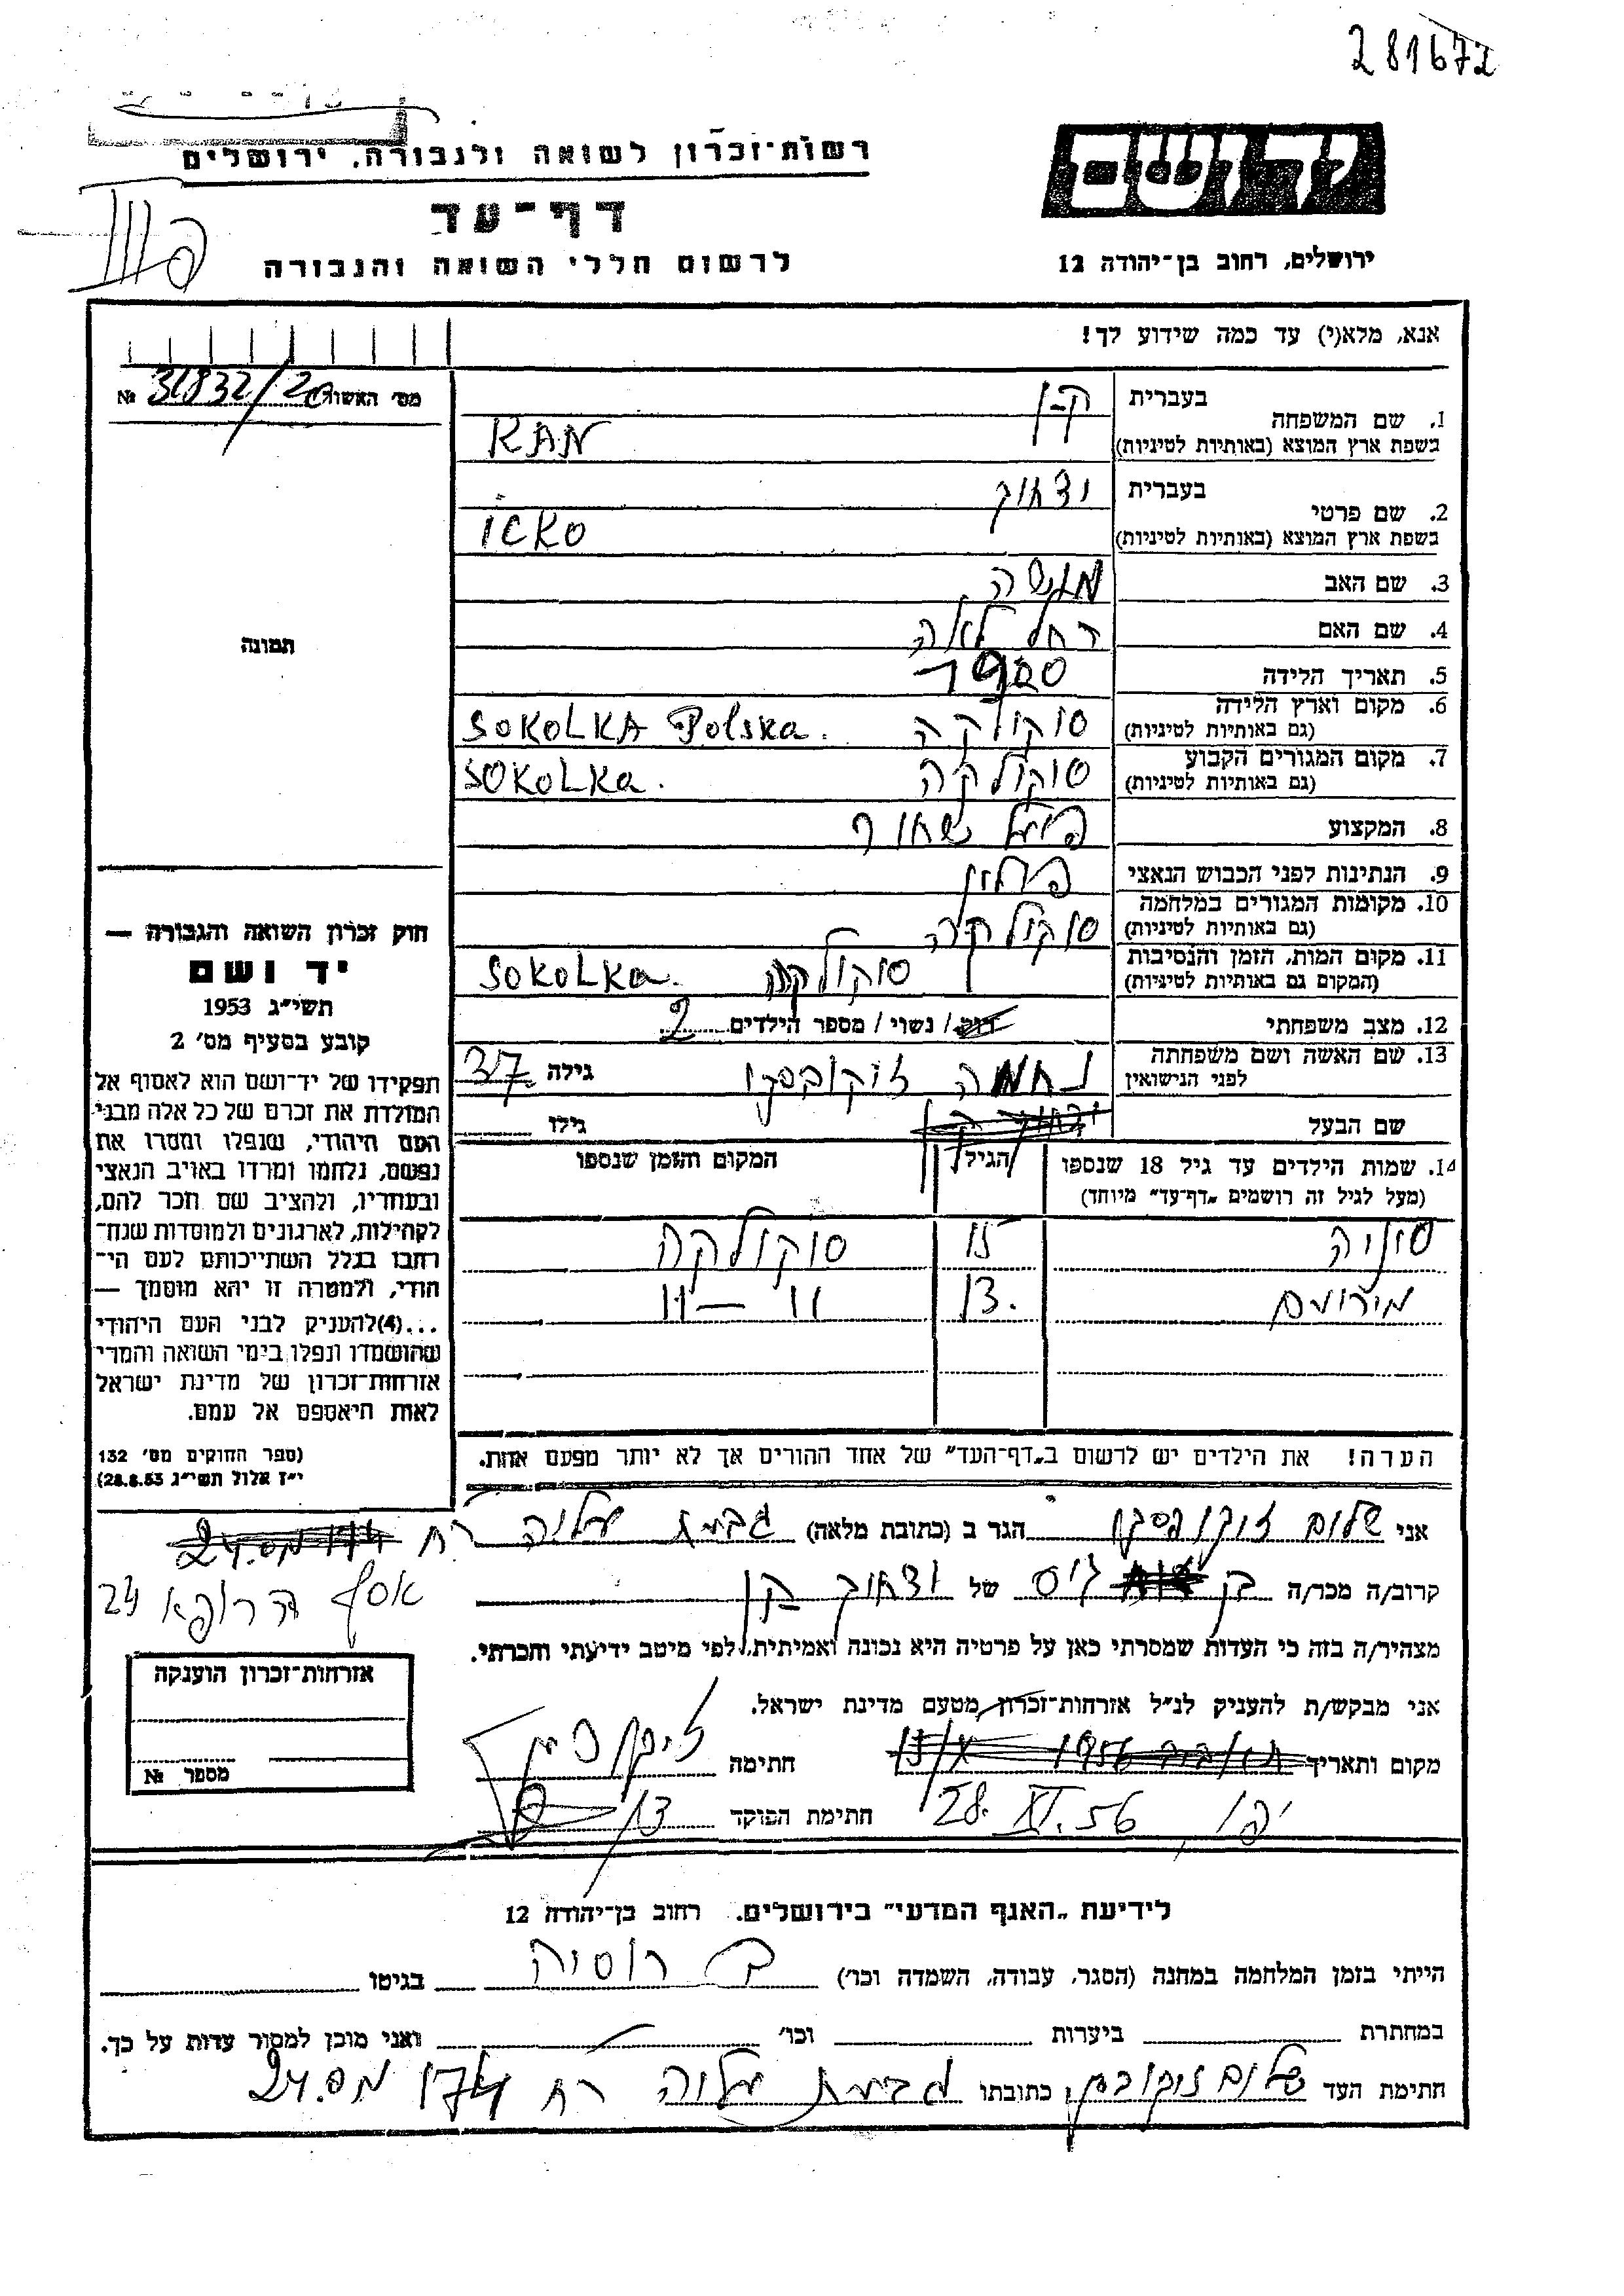 281672
רשות־זכרון לשואה ולגבורה, ירושלים
דף־עד
לרשום חללי השואה והגבורה
ירושלים, רחוב בן־יהודה 12
אנא, מלא(י) עד כמה שידוע לך!
מס׳ האשור 31832/20 №
1. שם המשפחה בעברית ק-ן
בשפת ארץ המוצא (באותיות לטיניות) KAN
2. שם פרטי בעברית יצחוק
בשפת ארץ המוצא (באותיות לטיניות) icKO
3. שם האב מנשה
4. שם האם רחל לאה
5. תאריך הלידה 1900
6. מקום וארץ הלידה (גם באותיות לטיניות) סוקולקה SOKOLKA Polska.
7. מקום המגורים הקבוע (גם באותיות לטיניות) סוקולקה SOKOLKa.
8. המקצוע פועל שחור
9. הנתינות לפני הכבוש הנאצי פולין
10. מקומות המגורים במלחמה (גם באותיות לטיניות) סוקולקה
11. מקום המות, הזמן והנסיבות (המקום גם באותיות לטיניות) סוקולקה SOKOLKa.
12. מצב משפחתי רוק/ נשוי/ מספר הילדים 2
13. שם האשה ושם משפחתה לפני הנישואין נחמה גילה 37
שם הבעל גילו
14. שמות הילדים עד גיל 18 שנספו (מעל לגיל זה רושמים „דף־עד" מיוחד) הגיל המקום והזמן שנספו
סוניה 15 סוקולקה
מירומס 13. 11 — 11
תמונה
חוק זכרון השואה והגבורה —
יד ושם
תשי״ג 1953
קובע בסעיף מס׳ 2
תפקידו של יד־ושם הוא לאסוף אל
המולדת את זכרם של כל אלה מבני
העם היהודי, שנפלו ומסרו את
נפשם, נלחמו ומרדו באויב הנאצי
ובעוזריו, ולהציב שם וזכר להם,
לקהילות, לארגונים ולמוסדות שנח־
רבו בגלל השתייכותם לעם הי־
הודי, ולמטרה זו יהא מוסמך —
...(4)להעניק לבני העם היהודי
שהושמדו ונפלו בימי השואה והמרי
אזרחות־זכרון של מדינת ישראל
לאות היאספם אל עמם.
(ספר החוקים מס׳ 132
י״ז אלול תשי״ג 28.8.53)
הערה! את הילדים יש לרשום ב„דף־העד" של אחד ההורים אך לא יותר מפעם אחת.
אני שלום הגר ב (כתובת מלאה) גבעת עליה רח
אסף הרופא 24
קרוב/ה מכר/ה גיס של יצחוק קן
מצהיר/ה בזה כי העדות שמסרתי כאן על פרטיה היא נכונה ואמיתית, לפי מיטב ידיעתי והכרתי.
אני מבקש/ת להעניק לנ״ל אזרחות־זכרון מטעם מדינת ישראל.
מקום ותאריך חתימה
יפו, 28. XI. 56 חתימת הפוקד
אזרחות־זכרון הוענקה
מספר №
לידיעת „האגף המדעי" בירושלים. רחוב בן־יהודה 12
הייתי בזמן המלחמה במחנה (הסגר, עבודה, השמדה וכו׳) ב רוסיה בגיטו
במחתרת ביערות וכו׳ ואני מוכן למסור עדות על כך.
חתימת העד שלום כתובתו גבעת עליה רח 174 מס. 24